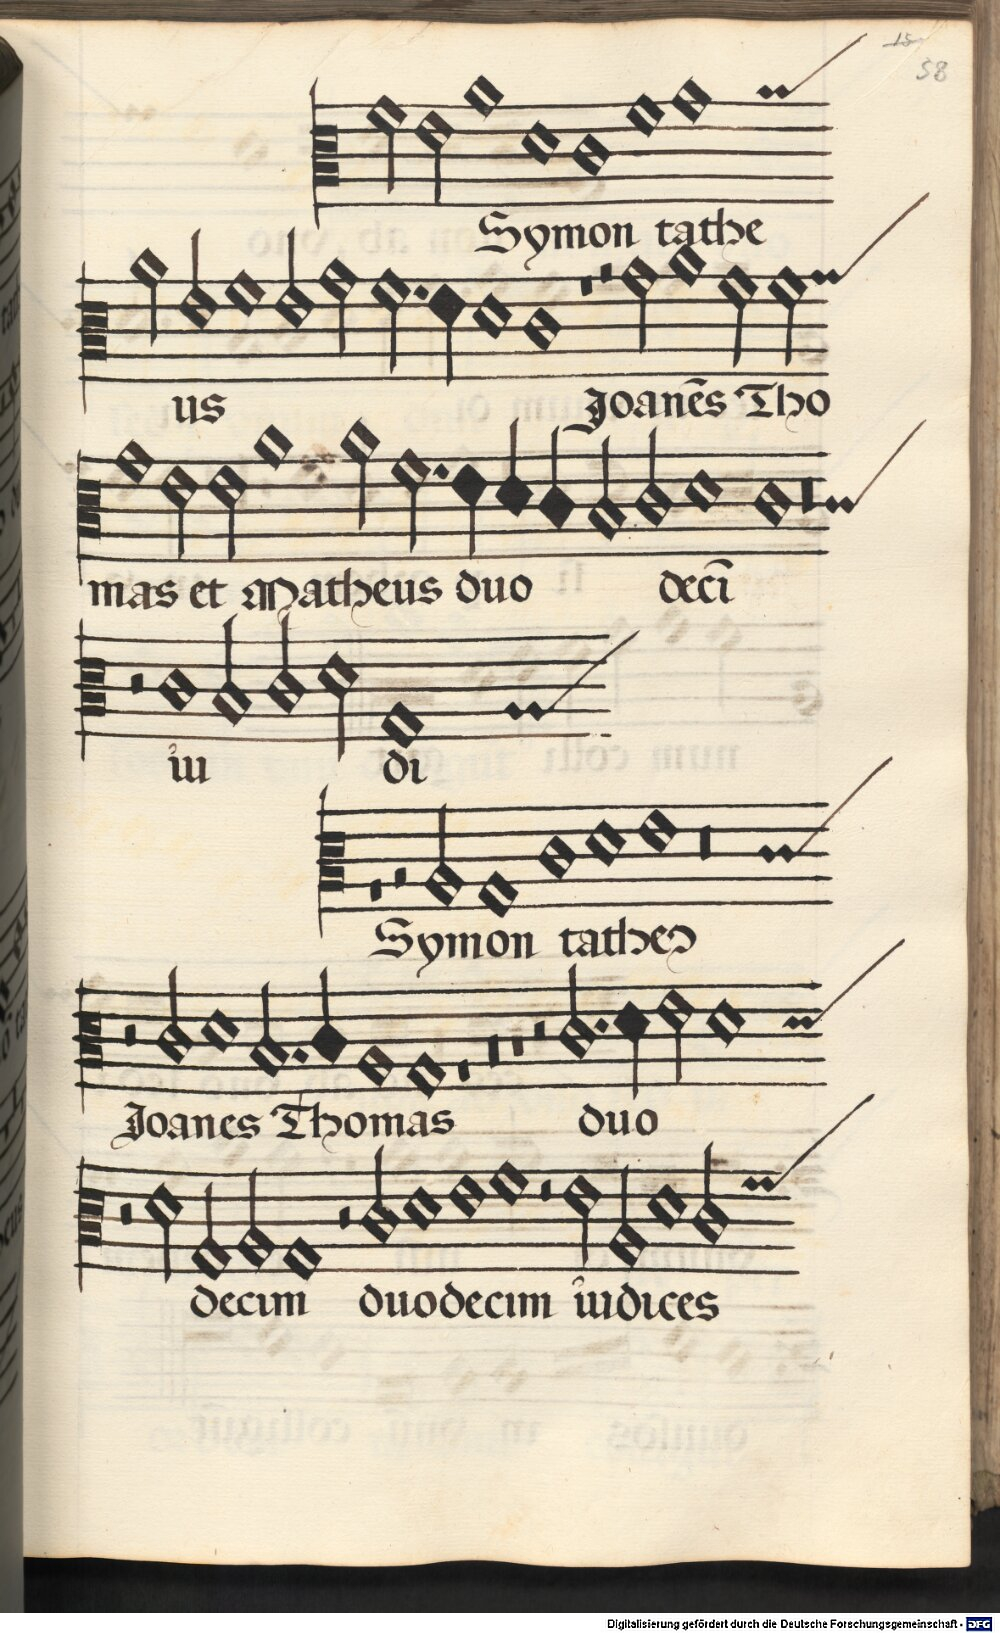 15
58
Symon tathe
us Joanēs Tho
mas et Matheus duo decī
iu di
Symon tatheꝯ
Joanes Thomas duo
decim duodecim iudices
Digitalisierung gefördert durch die Deutsche Forschungsgemeinschaft - DFG